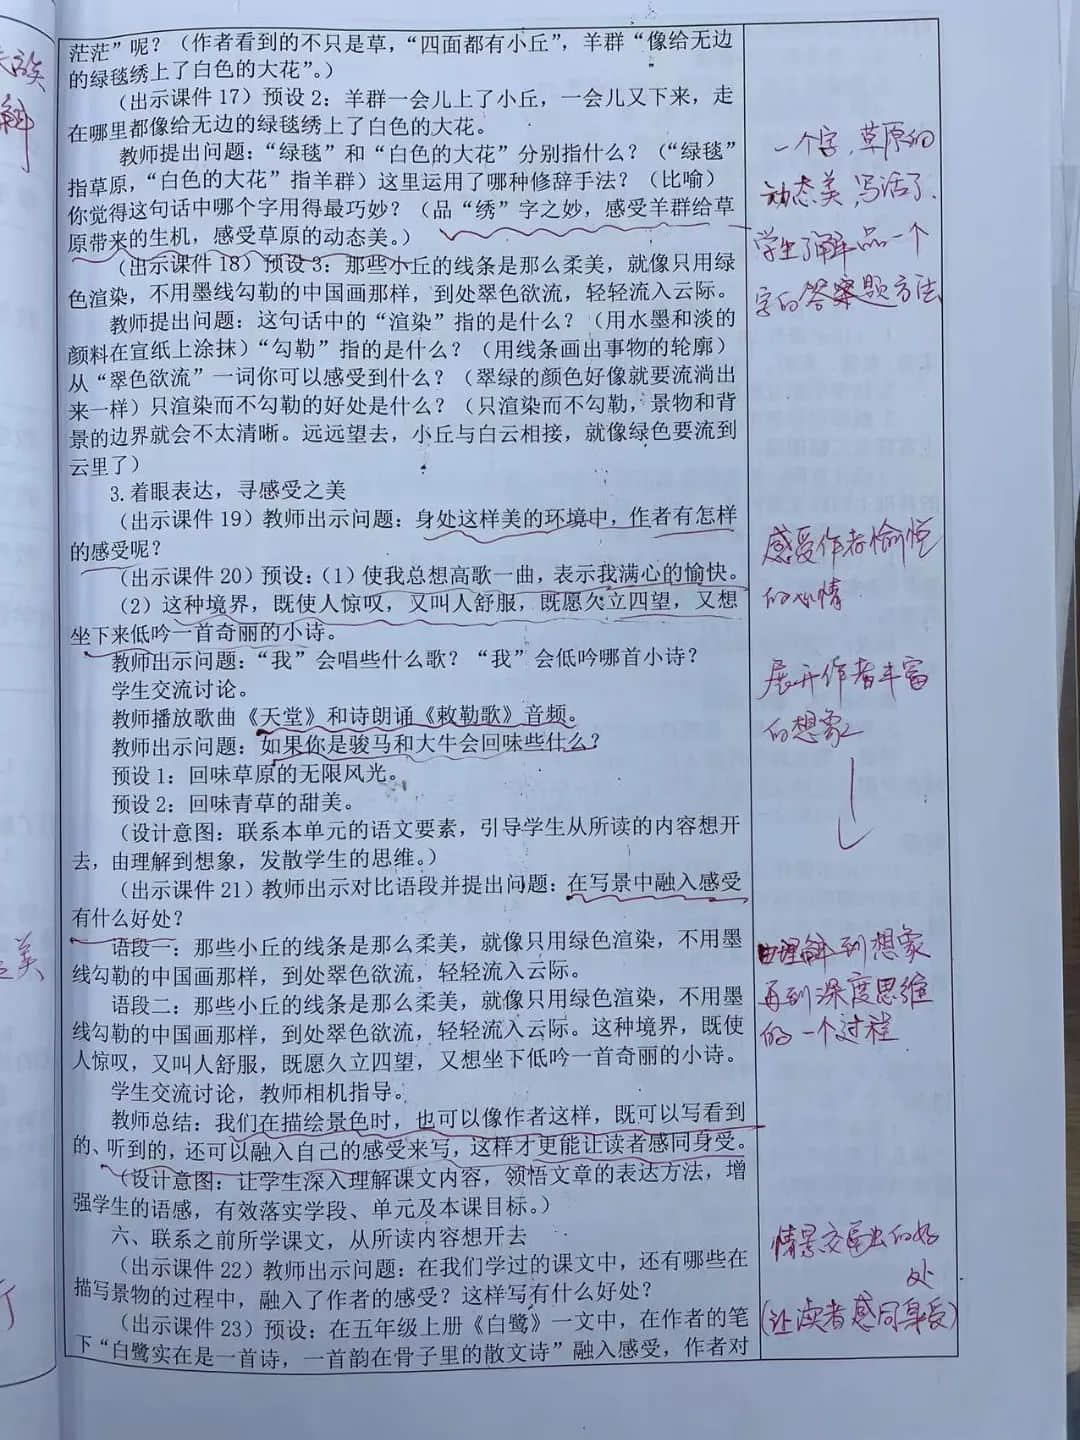 茫茫”呢？（作者看到的不只是草，“四面都有小丘”，羊群“像给无边
的绿毯绣上了白色的大花”。）
（出示课件 17）预设 2：羊群一会儿上了小丘，一会儿又下来，走
在哪里都像给无边的绿毯绣上了白色的大花。
教师提出问题：“绿毯”和“白色的大花”分别指什么？（“绿毯”
指草原，“白色的大花”指羊群）这里运用了哪种修辞手法？（比喻）
你觉得这句话中哪个字用得最巧妙？（品“绣”字之妙，感受羊群给草
原带来的生机，感受草原的动态美。）
（出示课件 18）预设 3：那些小丘的线条是那么柔美，就像只用绿
色渲染，不用墨线勾勒的中国画那样，到处翠色欲流，轻轻流入云际。
教师提出问题：这句话中的“渲染”指的是什么？（用水墨和淡的
颜料在宣纸上涂抹）“勾勒”指的是什么？（用线条画出事物的轮廓）
从“翠色欲流”一词你可以感受到什么？（翠绿的颜色好像就要流淌出
来一样）只渲染而不勾勒的好处是什么？（只渲染而不勾勒，景物和背
景的边界就会不太清晰。远远望去，小丘与白云相接，就像绿色要流到
云里了）
3.着眼表达，寻感受之美
（出示课件 19）教师出示问题：身处这样美的环境中，作者有怎样
的感受呢？
（出示课件 20）预设：（1）使我总想高歌一曲，表示我满心的愉快。
（2）这种境界，既使人惊叹，又叫人舒服，既愿久立四望，又想
坐下来低吟一首奇丽的小诗。
教师出示问题：“我”会唱些什么歌？“我”会低吟哪首小诗？
学生交流讨论。
教师播放歌曲《天堂》和诗朗诵《敕勒歌》音频。
教师出示问题：如果你是骏马和大牛会回味些什么？
预设 1：回味草原的无限风光。
预设 2：回味青草的甜美。
（设计意图：联系本单元的语文要素，引导学生从所读的内容想开
去，由理解到想象，发散学生的思维。）
（出示课件 21）教师出示对比语段并提出问题：在写景中融入感受
有什么好处？
语段一：那些小丘的线条是那么柔美，就像只用绿色渲染，不用墨
线勾勒的中国画那样，到处翠色欲流，轻轻流入云际。
语段二：那些小丘的线条是那么柔美，就像只用绿色渲染，不用墨
线勾勒的中国画那样，到处翠色欲流，轻轻流入云际。这种境界，既使
人惊叹，又叫人舒服，既愿久立四望，又想坐下低吟一首奇丽的小诗。
学生交流讨论，教师相机指导。
教师总结：我们在描绘景色时，也可以像作者这样，既可以写看到
的、听到的，还可以融入自己的感受来写，这样才更能让读者感同身受。
（设计意图：让学生深入理解课文内容，领悟文章的表达方法，增
强学生的语感，有效落实学段、单元及本课目标。）
六、联系之前所学课文，从所读内容想开去
（出示课件 22）教师出示问题：在我们学过的课文中，还有哪些在
描写景物的过程中，融入了作者的感受？这样写有什么好处？
（出示课件 23）预设：在五年级上册《白鹭》一文中，在作者的笔
下“白鹭实在是一首诗，一首韵在骨子里的散文诗”融入感受，作者对
一个字，草原的
动态美，写活了.
学生了解品一个
字的答案题方法
感受作者愉悦
的心情
展开作者丰富
的想象
由理解到想象
再到深度思维
的一个过程
情景交融出的好
处
（让读者感同身受）
族
美